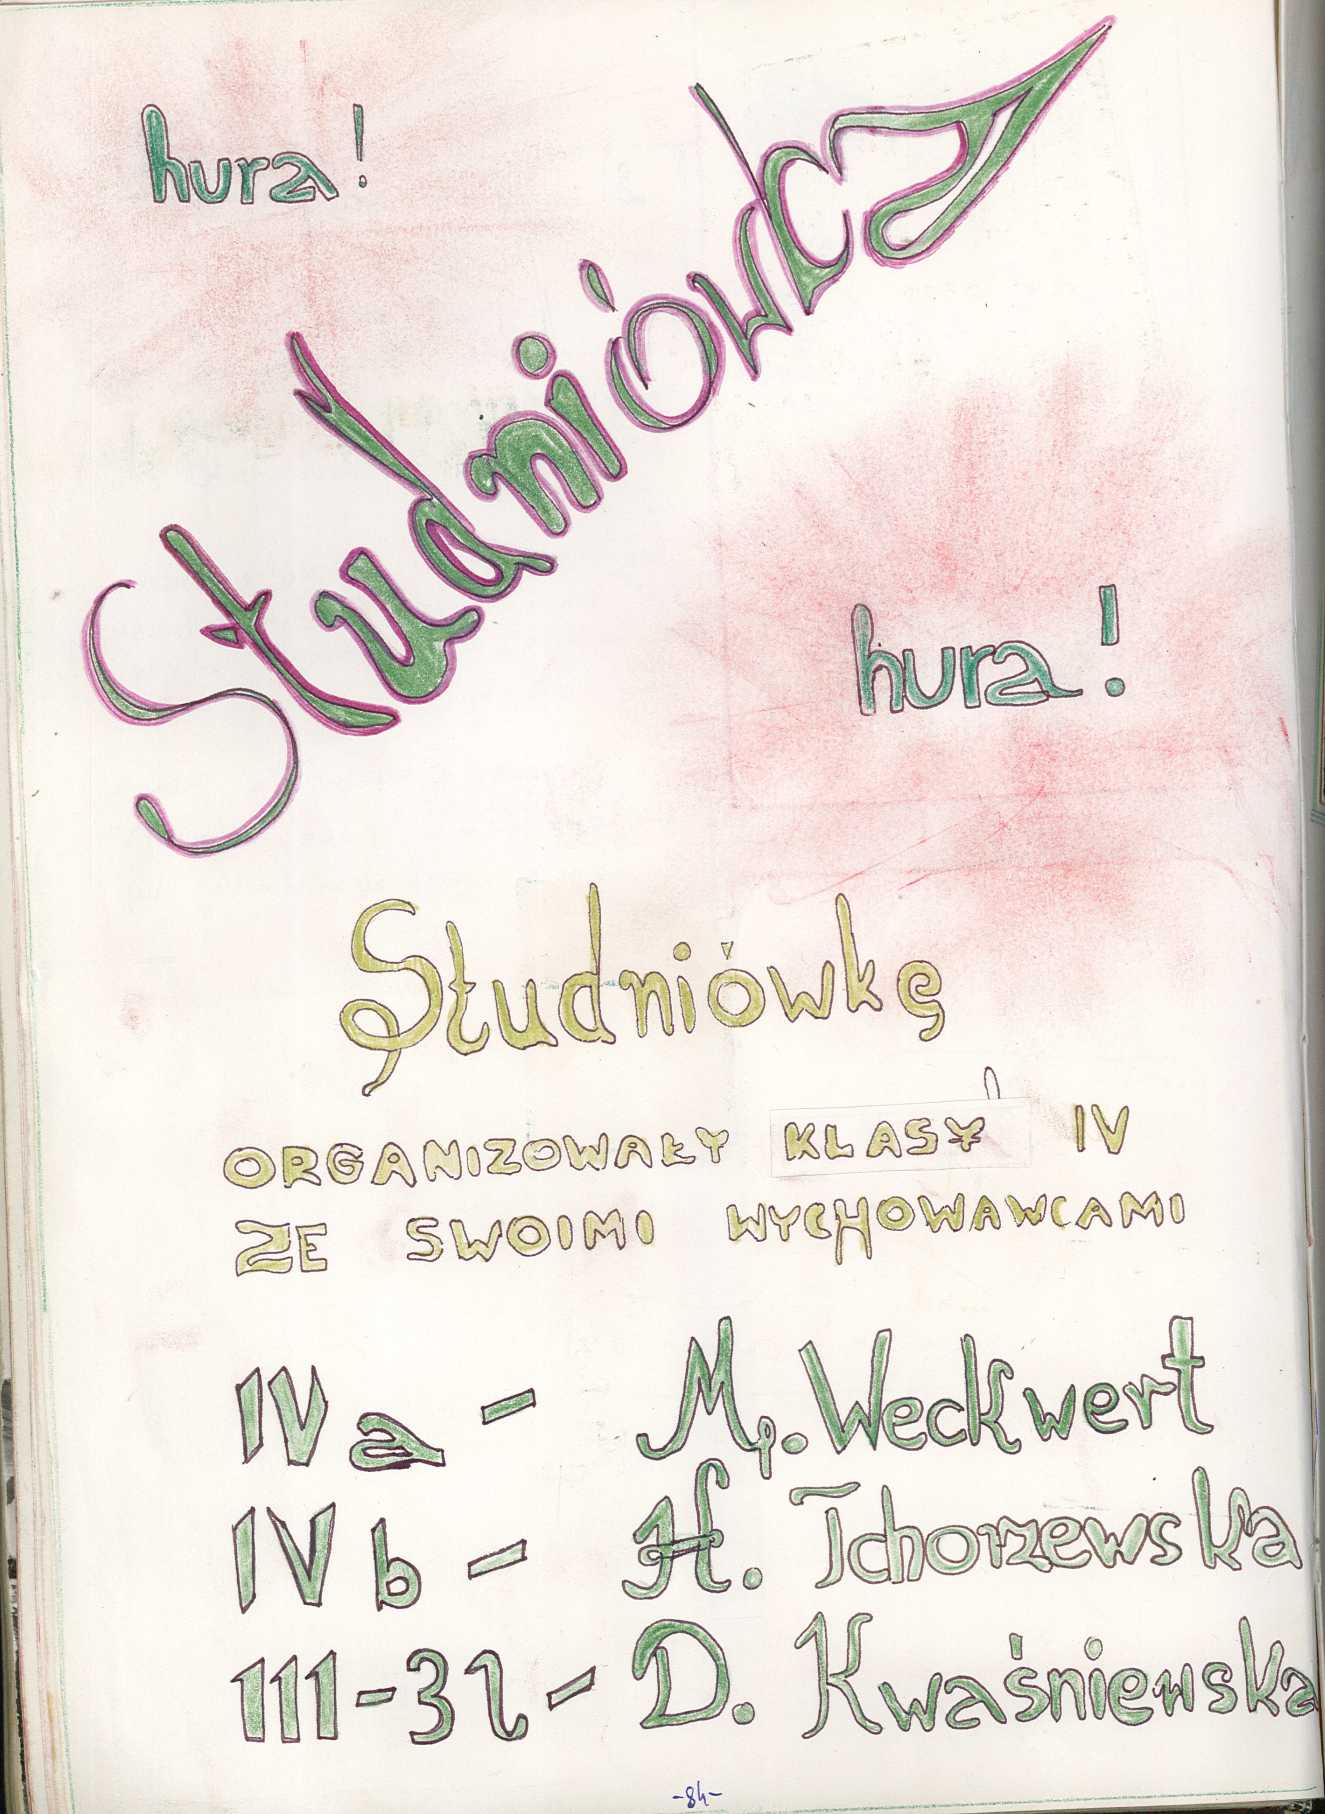 hura!
Studniówka
hura!
Studniówkę
ORGANIZOWAŁY KLASY IV
ZE SWOIMI WYCHOWAWCAMI
IVa - M. Weckwert
IVb - H. Tchorzewska
III-3l - D. Kwaśniewska
-84-